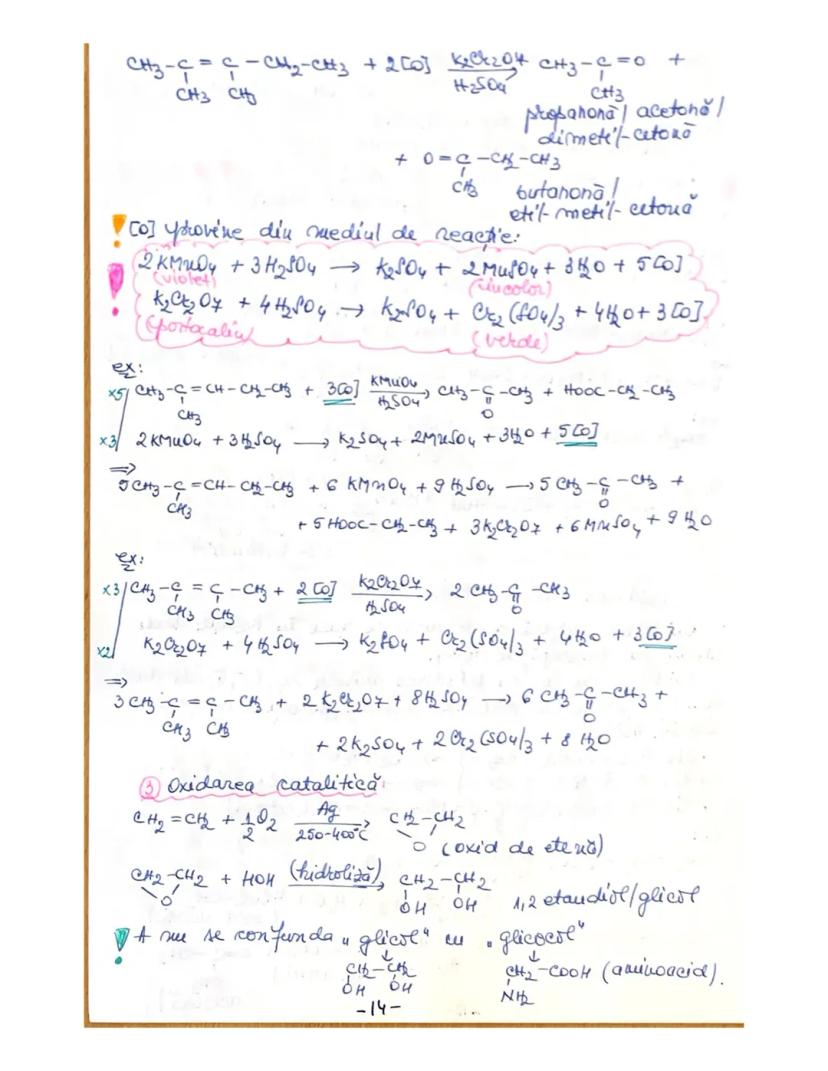 CH3-C = C - CH2-CH3 + 2[O] K2Cr2O7 CH3-C=O +
CH3 CH3 H2SO4 CH3
propanonă / acetonă /
dimetil-cetonă
+ O=C-CH2-CH3
CH3 butanonă /
etil-metil-cetonă
! [O] provine din mediul de reacție:
2KMnO4 + 3H2SO4 → K2SO4 + 2MnSO4 + 3H2O + 5[O]
! (violet) (incolor)
K2Cr2O7 + 4H2SO4 → K2SO4 + Cr2(SO4)3 + 4H2O + 3[O]
(portocaliu) (verde)
ex:
x5/ CH3-C=CH-CH2-CH3 + 3[O] KMnO4 CH3-C-CH3 + HOOC-CH2-CH3
CH3 H2SO4 O
x3/ 2KMnO4 + 3H2SO4 → K2SO4 + 2MnSO4 + 3H2O + 5[O]
⇒
5CH3-C=CH-CH2-CH3 + 6 KMnO4 + 9H2SO4 → 5CH3-C-CH3 +
CH3 O
+ 5HOOC-CH2-CH3 + 3K2Cr2O7 + 6MnSO4 + 9H2O
ex:
x3/ CH3-C = C-CH3 + 2[O] K2Cr2O7 2CH3-C-CH3
CH3 CH3 H2SO4 O
x2/ K2Cr2O7 + 4H2SO4 → K2SO4 + Cr2(SO4)3 + 4H2O + 3[O]
⇒
3CH3-C = C-CH3 + 2K2Cr2O7 + 8H2SO4 → 6CH3-C-CH3 +
CH3 CH3 O
+ 2K2SO4 + 2Cr2(SO4)3 + 8H2O
③ Oxidarea catalitică
CH2=CH2 + 1/2O2 Ag CH2-CH2
250-400°C O (oxid de etenă)
CH2-CH2 + HOH (hidroliză) CH2-CH2
O OH OH 1,2 etandiol/glicol
! A nu se confunda „glicol" cu „glicocol"
CH2-CH2 CH2-COOH (aminoacid).
OH OH NH2
-14-